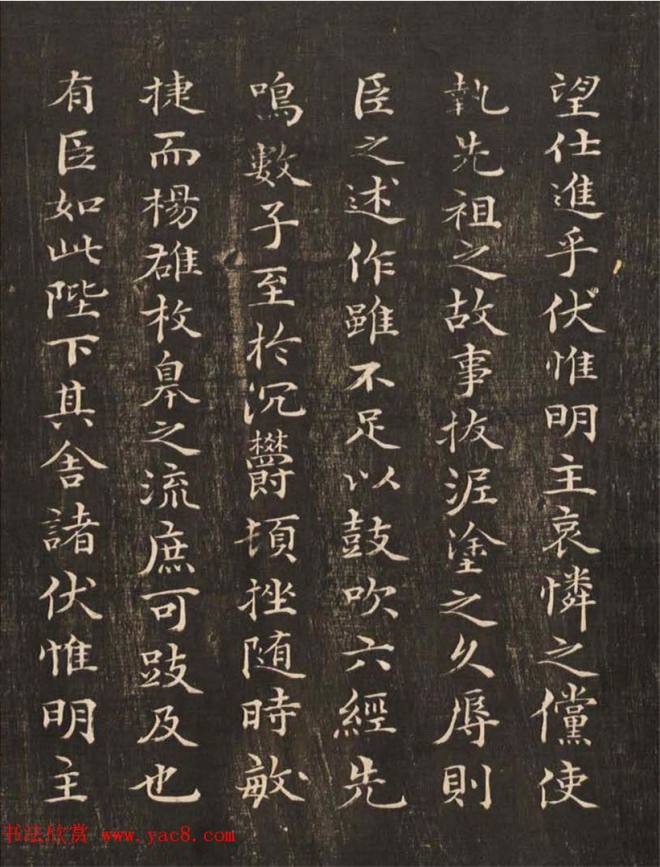 望仕進乎伏惟明主哀憐之儻使
執先祖之故事拔泥塗之久辱則
臣之述作雖不足以鼓吹六經先
鳴數子至於沉欝頓挫随時敏
捷而楊雄枚臯之流庶可跂及也
有臣如此陛下其舍諸伏惟明主
书法欣赏 www.yac8.com